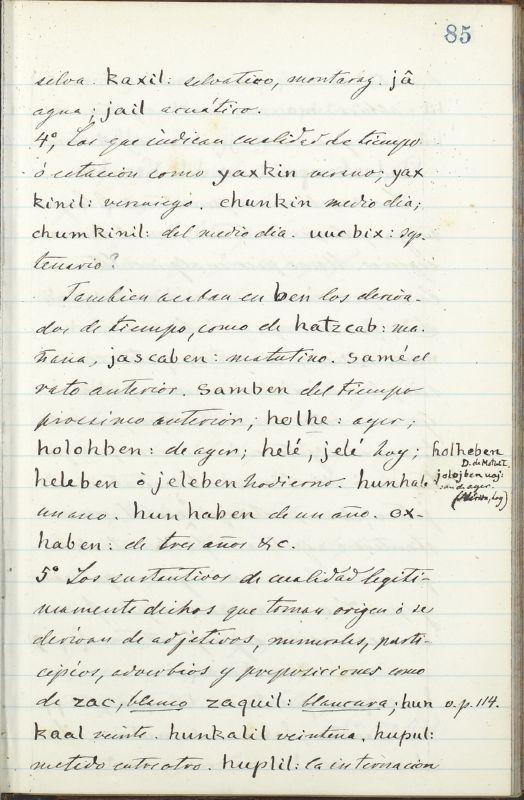 85
selva. kaxil: selvatico, montaraz. jâ
agua; jail acuático.
4º, Los que indican cualidad de tiempo
ó estación como yaxkin verano; yax
kinil: veraniego. chunkin medio dia;
chumkinil: del medio dia. uucbix: sep-
tenario?
Tambien acaban en ben los deriva-
dos de tiempo, como de hatzcab: ma-
ñana, jascaben: matutino. samé el
rato anterior. samben del tiempo
procsimo anterior; holhe: ayer;
holohben: de ayer; helé, jelé hoy;
heleben ò jeleben hodierno. hunhab
un ano. hun haben de un año. ox-
haben: de tres años &c.
holheben
D. de Motul I.
jolojben uaj:
pan de ayer.
5º Los sustantivos de cualidad legiti-
mamente dichos que toman origen ó se
derivan de adjetivos, numerales, parti-
cipios, adverbios y preposiciones como
de zac, blanco zaquil: blancura; hun
v. p. 114.
kaal veinte. hunkalil veintena. hupul:
metido entre otro. huplil: la internacion